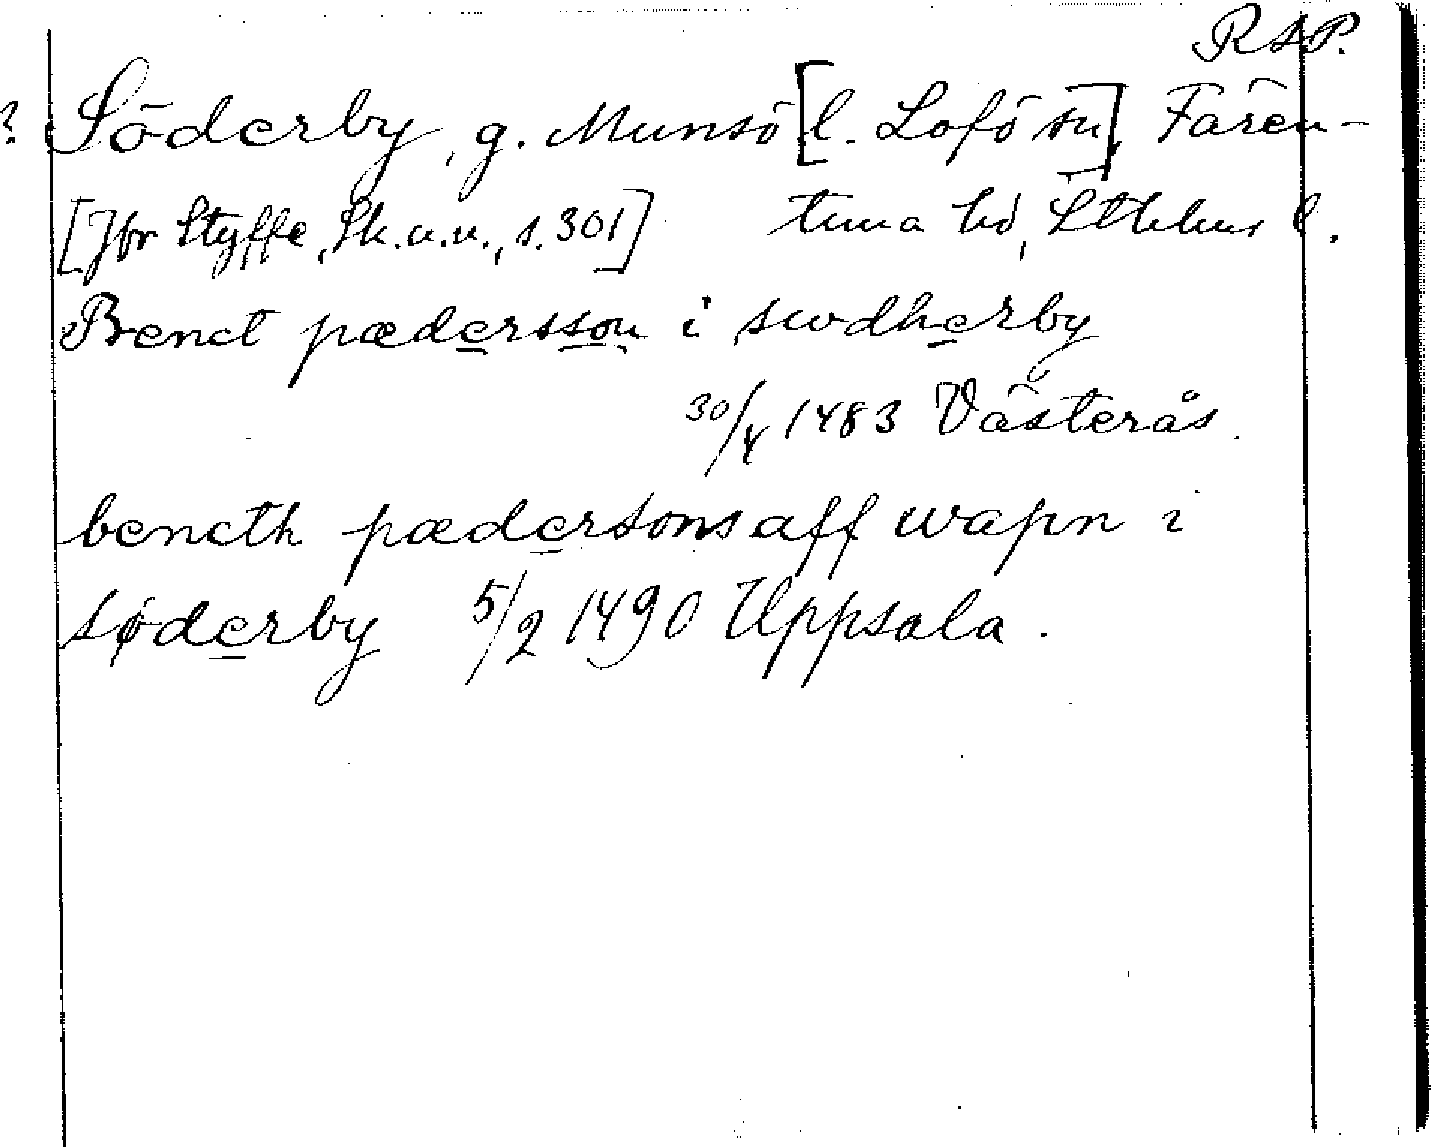 RAP.
? Söderby, g. Munsö [l. Lofö sn], Fären-
[Jfr Styffe, Sk.u.u., s. 301] tuna hd, Sthlms l.
Benct pædersson i swdherby
30/4 1483 Västerås.
bencth pædersons aff wapn i
søderby 5/2 1490 Uppsala.